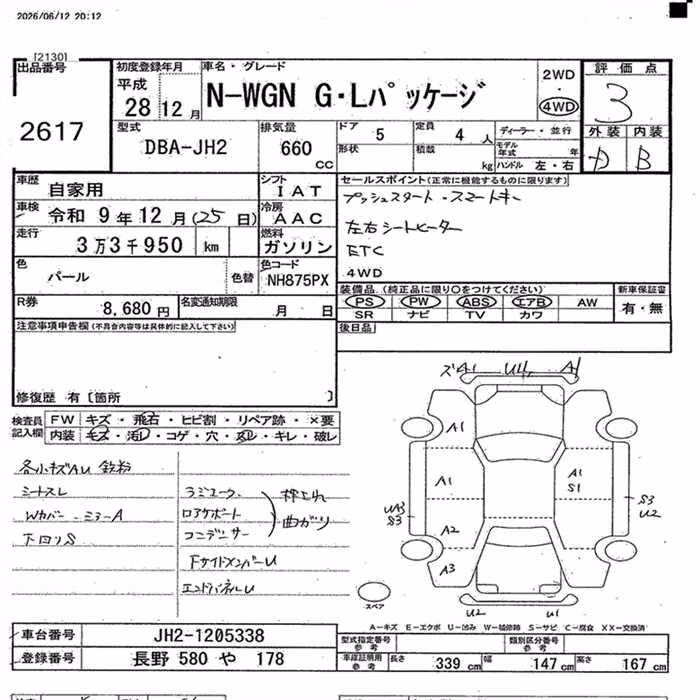 2026/06/12 20:12
[2130]
出品番号
2617
初度登録年月
平成
28 12 月
車名・グレード
N-WGN G・Lパッケージ
2WD
4WD
評価点
3
外装 内装
D B
型式
DBA-JH2
排気量
660
CC
ドア
5
形状
定員
4 人
積載
kg
ディーラー・並行
モデル年式 年
ハンドル 左・右
車歴
自家用
シフト
IAT
車検
令和 9 年 12 月 (25 日)
冷房
AAC
走行
3万3千950 km
燃料
ガソリン
色
パール
色替
色コード
NH875PX
R券
8,680 円
名変通知期限
月 日
セールスポイント(正常に機能するものに限ります)
プッシュスタート・スマートキー
左右シートヒーター
ETC
4WD
装備品(純正品に限り○をつけてください)
PS PW ABS エアB AW
SR ナビ TV カワ
新車保証書
有・無
後日品
注意事項申告欄(不具合内容等は具体的に記入して下さい)
修復歴 有〔箇所 〕
検査員記入欄
FW キズ・飛石・ヒビ割・リペア跡・×要
内装 キズ・汚レ・コゲ・穴・スレ・キレ・破レ
各小キズAU 鉄粉
シートスレ
Wカバー・ミラーA
下回りS
ラジエータ
ロアサポート
コンデンサー
押され
曲がり
FサイドメンバーU
エンドパネルU
ズ A1 U4 A1
A1
A1
A1
S1
A2
UA3
S3
S3
U2
A3
U2 U1
スペア
A−キズ E−エクボ U−凹み W−補修跡 S−サビ C−腐食 XX−交換済
車台番号
JH2-1205338
登録番号
長野 580 や 178
型式指定番号
参考
類別区分番号
参考
車庫証明用
参考
長さ 339 cm 幅 147 cm 高さ 167 cm